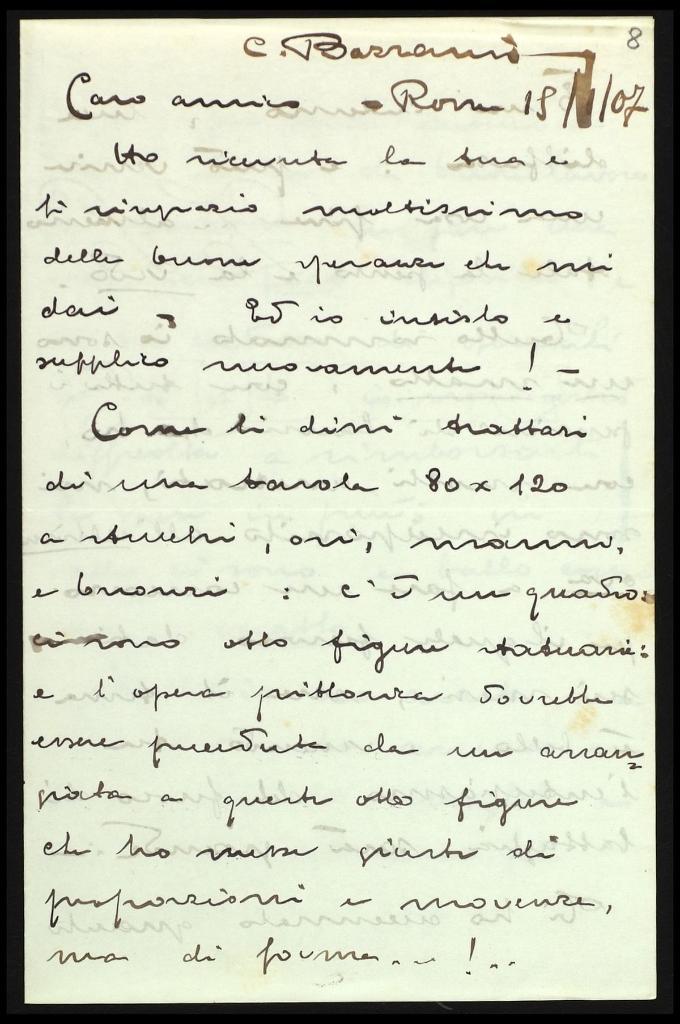 8
C. Bazzani
Caro amico - Roma 15/1/07
Ho ricevuta la tua e
ti ringrazio moltissimo
delle buone speranze che mi
dai - Ed io insisto e
supplico nuovamente! -
Come ti dissi trattasi
di una tavola 80 x 120
a stucchi, ori, marmi,
e bronzi: c'è un quadro:
ci sono otto figure statuarie:
e l'opera pittorica dovrebbe
essere preceduta da un arran=
giata a queste otto figure
che ho messe giuste di
proporzioni e movenze,
ma di forma...!..